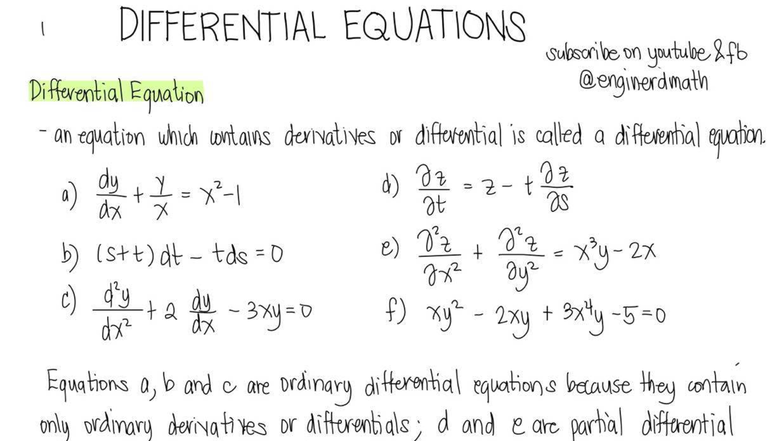 1
DIFFERENTIAL EQUATIONS
subscribe on youtube & fb
@enginerdmath
Differential Equation
- an equation which contains derivatives or differential is called a differential equation.
a) dy/dx + y/x = x² - 1
d) ∂z/∂t = z - t ∂z/∂s
b) (s+t) dt - tds = 0
e) ∂²z/∂x² + ∂²z/∂y² = x³y - 2x
c) d²y/dx² + 2 dy/dx - 3xy = 0
f) xy² - 2xy + 3x⁴y - 5 = 0
Equations a, b and c are ordinary differential equations because they contain
only ordinary derivatives or differentials; d and e are partial differential